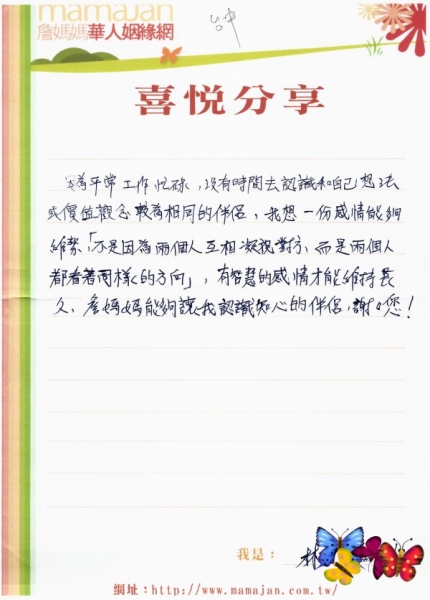 mamajan
詹媽媽華人姻緣網
台中
喜悅分享
因為平常工作忙碌，沒有時間去認識和自己想法
或價值觀念較為相同的伴侶，我想一份感情能夠
維繫，「不是因為兩個人互相凝視對方，而是兩個人
都看著同樣的方向」，有智慧的感情才能維持長
久，詹媽媽能夠讓我認識知心的伴侶，謝謝您！
我是：林
網址：http://www.mamajan.com.tw/